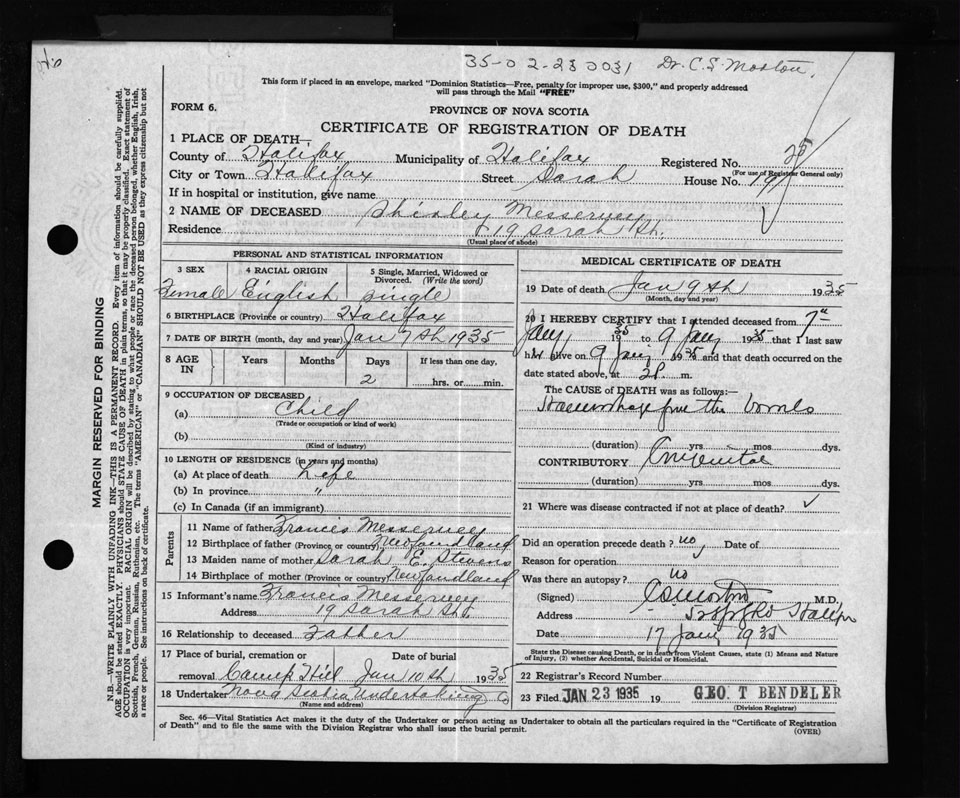 35-02-23 0031 Dr. C. S. Morton.
This form if placed in an envelope, marked "Dominion Statistics—Free, penalty for improper use, $300," and properly addressed
will pass through the Mail "FREE"
FORM 6.
PROVINCE OF NOVA SCOTIA
CERTIFICATE OF REGISTRATION OF DEATH
1 PLACE OF DEATH—
County of Halifax Municipality of Halifax Registered No. 25
(For use of Registrar General only)
City or Town Halifax Street Sarah House No. 19
If in hospital or institution, give name
2 NAME OF DECEASED Shirley Messervey
Residence 19 Sarah St.
(Usual place of abode)
PERSONAL AND STATISTICAL INFORMATION
3 SEX 4 RACIAL ORIGIN 5 Single, Married, Widowed or
Divorced. (Write the word)
Female English Single
6 BIRTHPLACE (Province or country) Halifax
7 DATE OF BIRTH (month, day and year) Jan 7th 1935
8 AGE IN Years Months Days If less than one day,
2 hrs. or min.
9 OCCUPATION OF DECEASED
(a) Child
(Trade or occupation or kind of work)
(b)
(Kind of industry)
10 LENGTH OF RESIDENCE (in years and months)
(a) At place of death Life
(b) In province "
(c) In Canada (if an immigrant)
Parents
11 Name of father Francis Messervey
12 Birthplace of father (Province or country) Newfoundland
13 Maiden name of mother Sarah E. Stevens
14 Birthplace of mother (Province or country) Newfoundland
15 Informant's name Francis Messervey
Address 19 Sarah St.
16 Relationship to deceased Father
17 Place of burial, cremation or Date of burial
removal Camp Hill Jan 10th 1935
18 Undertaker Nova Scotia Undertaking Co
(Name and address)
MEDICAL CERTIFICATE OF DEATH
19 Date of death Jan 9th 1935
(Month, day and year)
20 I HEREBY CERTIFY that I attended deceased from 7th
Jany 1935 to 9 Jany 1935 that I last saw
her alive on 9 Jany 1935 and that death occurred on the
date stated above, at m.
The CAUSE of DEATH was as follows:—
Haemorrhage from the bowels
(duration) yrs mos dys.
CONTRIBUTORY Congenital
(duration) yrs mos dys.
21 Where was disease contracted if not at place of death? ✓
Did an operation precede death? no Date of
Reason for operation
Was there an autopsy? no
(Signed) C S Morton M.D.
Address Halifax
Date 17 Jany 1935
State the Disease causing Death, or in death from Violent Causes, state (1) Means and
Nature of Injury, (2) whether Accidental, Suicidal or Homicidal.
22 Registrar's Record Number
23 Filed JAN 23 1935 19 GEO. T BENDELER
(Division Registrar)
Sec. 46—Vital Statistics Act makes it the duty of the Undertaker or person acting as Undertaker to obtain all the particulars required in the "Certificate of Registration
of Death" and to file the same with the Division Registrar who shall issue the burial permit.
(OVER)
MARGIN RESERVED FOR BINDING
N.B.—WRITE PLAINLY WITH UNFADING INK—THIS IS A PERMANENT RECORD. Every item of information should be carefully supplied.
AGE should be stated EXACTLY. PHYSICIANS should STATE CAUSE OF DEATH in plain terms, so that it may be properly classified. Exact statement of
OCCUPATION is very important. RACIAL ORIGIN will be described by stating to what people or race the deceased person belonged, whether English, Irish,
Scottish, French, German, Russian, Ruthenian, etc. The terms "AMERICAN" or "CANADIAN" SHOULD NOT BE USED as they express citizenship but not
a race or people. See instructions on back of certificate.